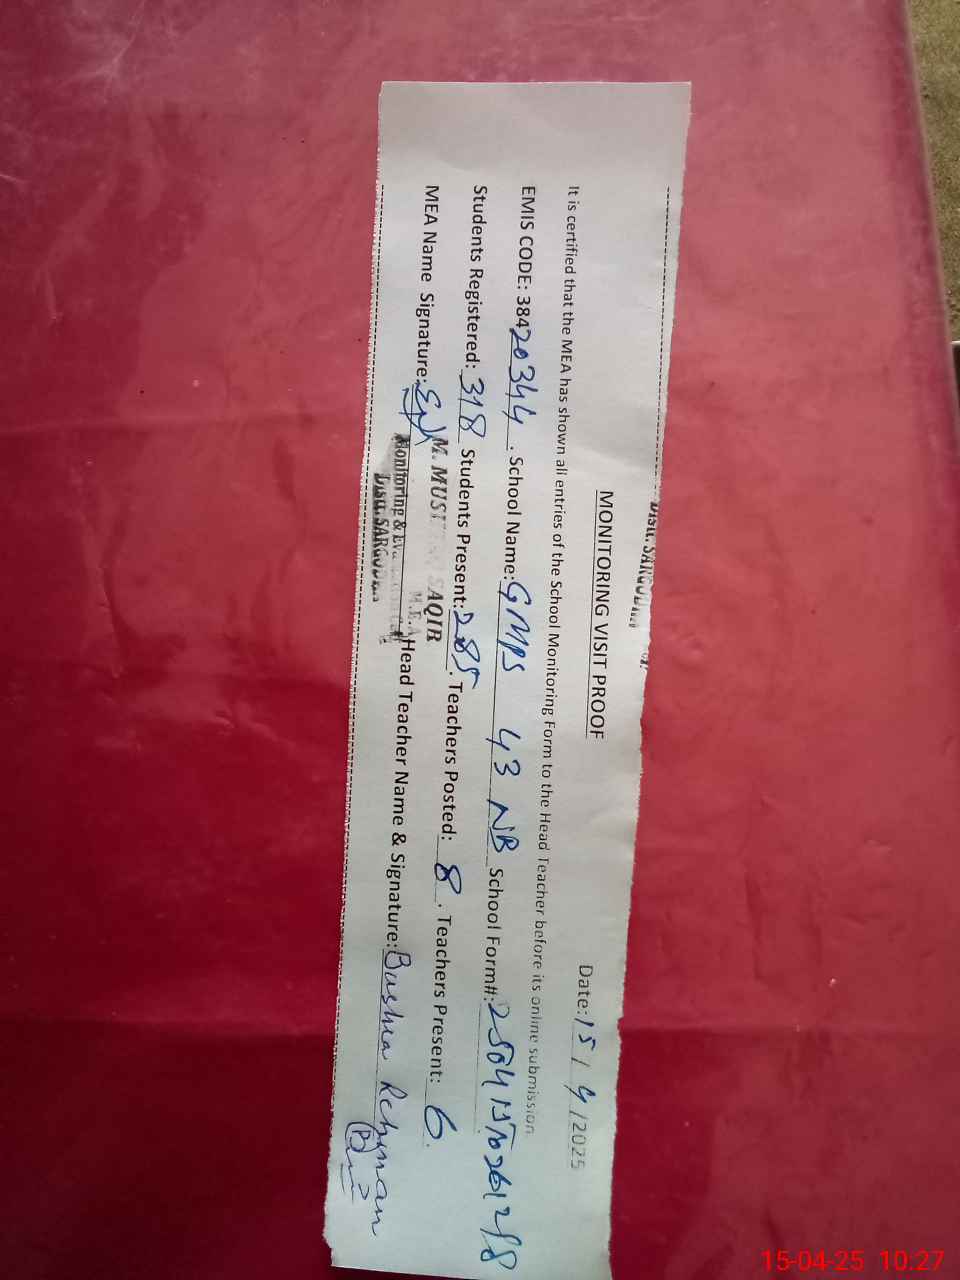 Distt. SARGODHA
MONITORING VISIT PROOF
Date: 15 / 4 / 2025
It is certified that the MEA has shown all entries of the School Monitoring Form to the Head Teacher before its online submission
EMIS CODE: 38420344. School Name: GMPS 43 NB School Form#:
Students Registered: 318 Students Present: 285. Teachers Posted: 8. Teachers Present: 6.
M. SAQIR
MEA Name Signature: Head Teacher Name & Signature: Bushra Rehman
M.E.A
Monitoring &
Distt. SARGODHA
15-04-25 10:27